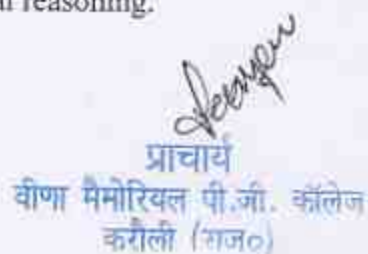 reasoning.
प्राचार्य
वीणा मैमोरियल पी.जी. कॉलेज
करौली (राज०)